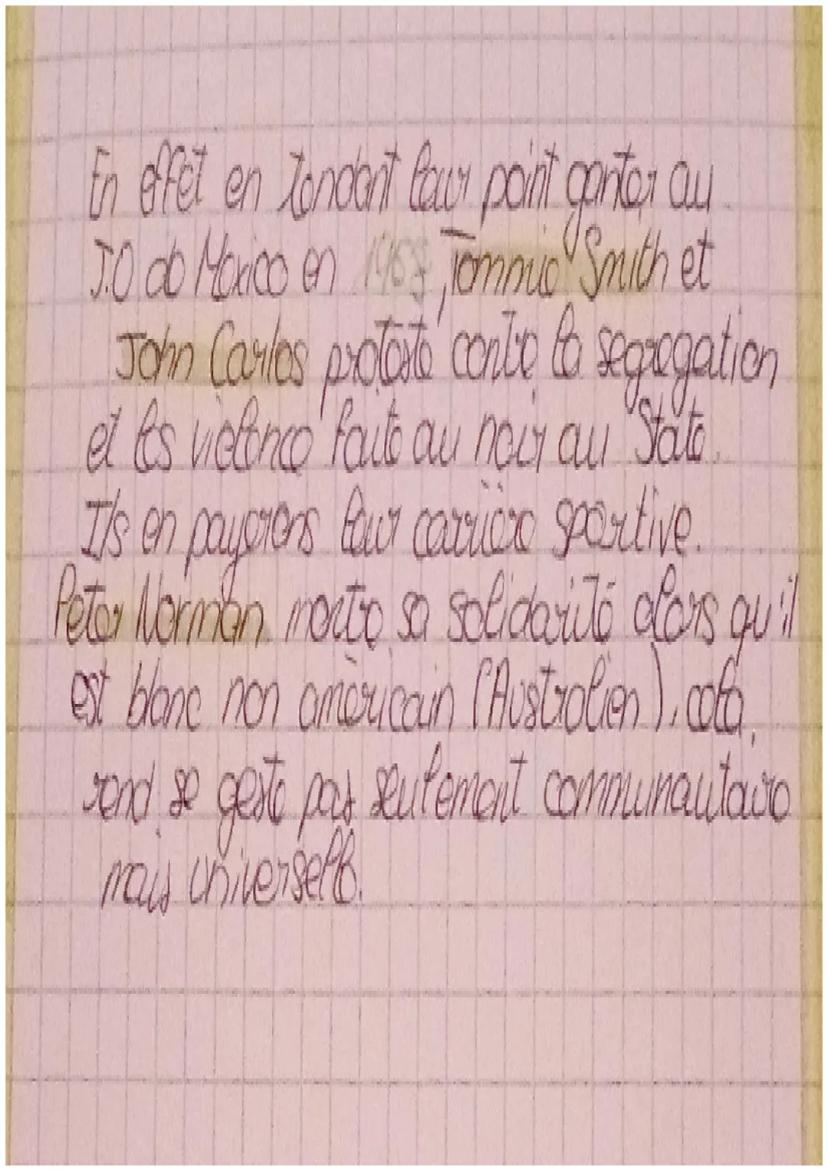 En effet en tendant leur point ganter au
J.O de Mexico en 1968, Tommie Smith et
John Carlos proteste contre la segregation
et les violence faite au noir au State.
Ils en payerons leur carrière sportive.
Peter Norman montre sa solidarité alors qu'il
est blanc non amèricain (Australien), cela
rend se geste pas seulement communautaire
mais universelle.